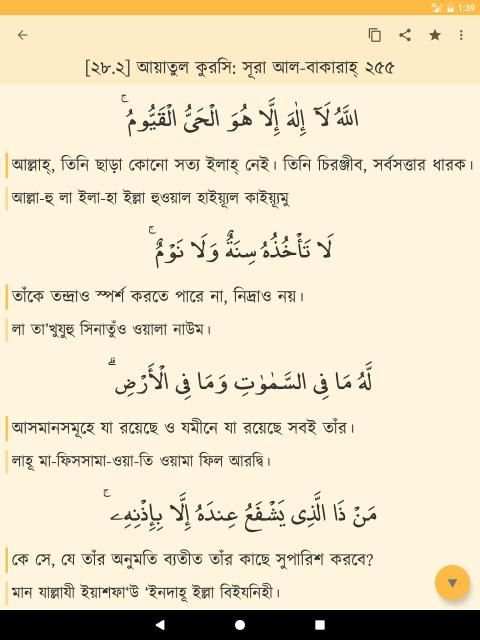 1:39
[২৮.২] আয়াতুল কুরসি: সূরা আল-বাকারাহ্ ২৫৫
اللَّهُ لَآ إِلٰهَ إِلَّا هُوَ الْحَىُّ الْقَيُّومُ ۚ
আল্লাহ্, তিনি ছাড়া কোনো সত্য ইলাহ্ নেই। তিনি চিরঞ্জীব, সর্বসত্তার ধারক।
আল্লা-হু লা ইলা-হা ইল্লা হুওয়াল হাইয়্যূল কাইয়্যূমু
لَا تَأْخُذُهُۥ سِنَةٌ وَلَا نَوْمٌ ۚ
তাঁকে তন্দ্রাও স্পর্শ করতে পারে না, নিদ্রাও নয়।
লা তা'খুযুহু সিনাতুঁও ওয়ালা নাউম।
لَّهُۥ مَا فِى السَّمٰوٰتِ وَمَا فِى الْأَرْضِ ۗ
আসমানসমূহে যা রয়েছে ও যমীনে যা রয়েছে সবই তাঁর।
লাহূ মা-ফিসসামা-ওয়া-তি ওয়ামা ফিল আরদ্বি।
مَنْ ذَا الَّذِى يَشْفَعُ عِندَهُۥٓ إِلَّا بِإِذْنِهِۦ ۚ
কে সে, যে তাঁর অনুমতি ব্যতীত তাঁর কাছে সুপারিশ করবে?
মান যাল্লাযী ইয়াশফা'উ 'ইনদাহূ ইল্লা বিইযনিহী।